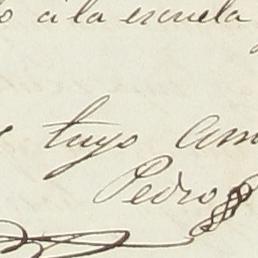 a la escuela
tuyo am
Pedro